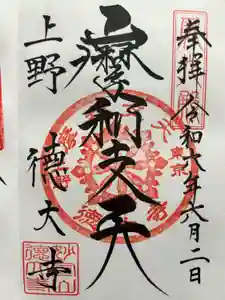 奉拝
令和六年六月二日
摩利支天
上野
徳大寺
東京